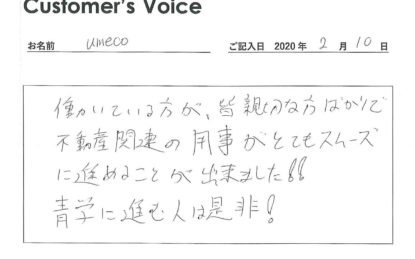 Customer's Voice
お名前 umeco ご記入日 2020 年 2 月 10 日
働いている方が、皆親切な方ばかりで
不動産関連の用事がとてもスムーズ
に進めることが出来ました!!
青学に進む人は是非!